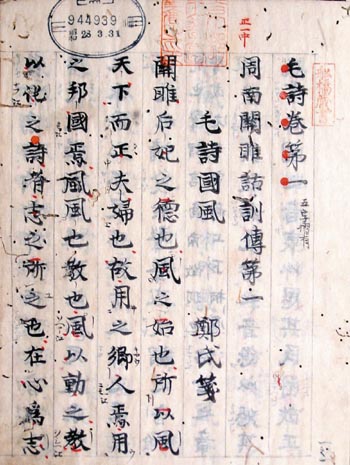 毛詩卷第一
周南關雎詁訓傳第一
毛詩國風 鄭氏箋
關雎后妃之德也風之始也所以風
天下而正夫婦也故用之鄉人焉用
之邦國焉風風也教也風以動之教
以化之詩者志之所之也在心爲志
944939
28.3.31